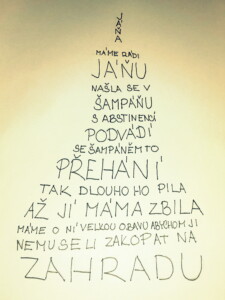 JÁŇA
MÁME RÁDI
JÁŇU
NAŠLA SE V
ŠAMPÁŇU
S ABSTINENCÍ
PODVÁDÍ
SE ŠAMPÁNEM TO
PŘEHÁNÍ
TAK DLOUHO HO PILA
AŽ JÍ MÁMA ZBILA
MÁME O NÍ VELKOU OBAVU ABYCHOM JI
NEMUSELI ZAKOPAT NA
ZAHRADU